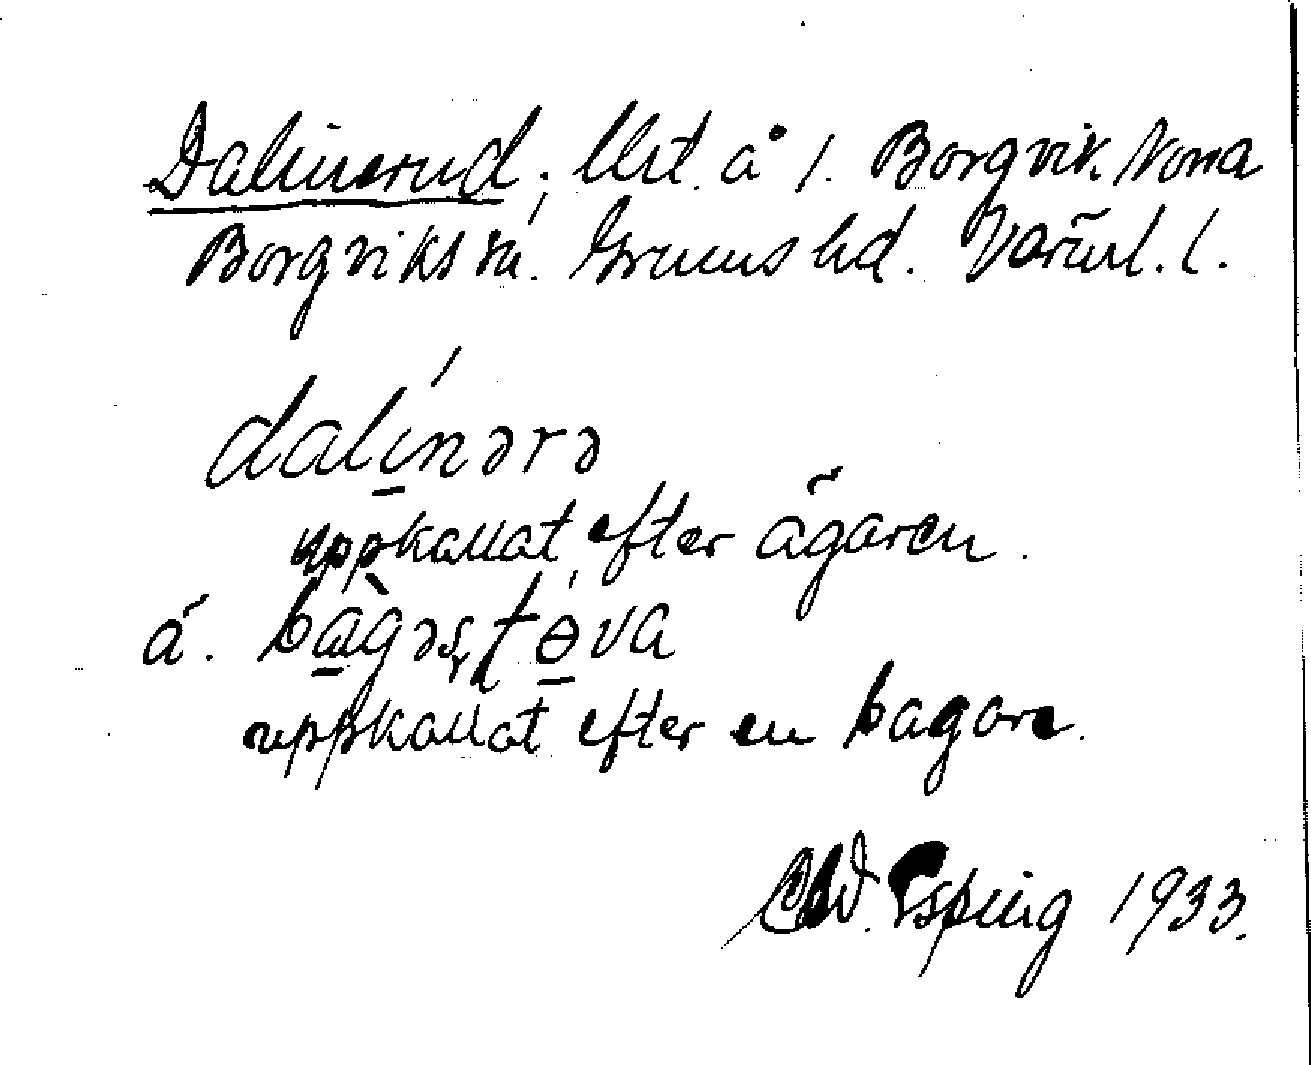 Dalinerud; Utt. å 1. Borgvik Norra
Borgviks sn. Grums hd. Värml. l.
dalínərə
uppkallat efter ägaren.
ä. bàgəʂʈɵ́va
uppkallat efter en bagare.
Esping 1933.